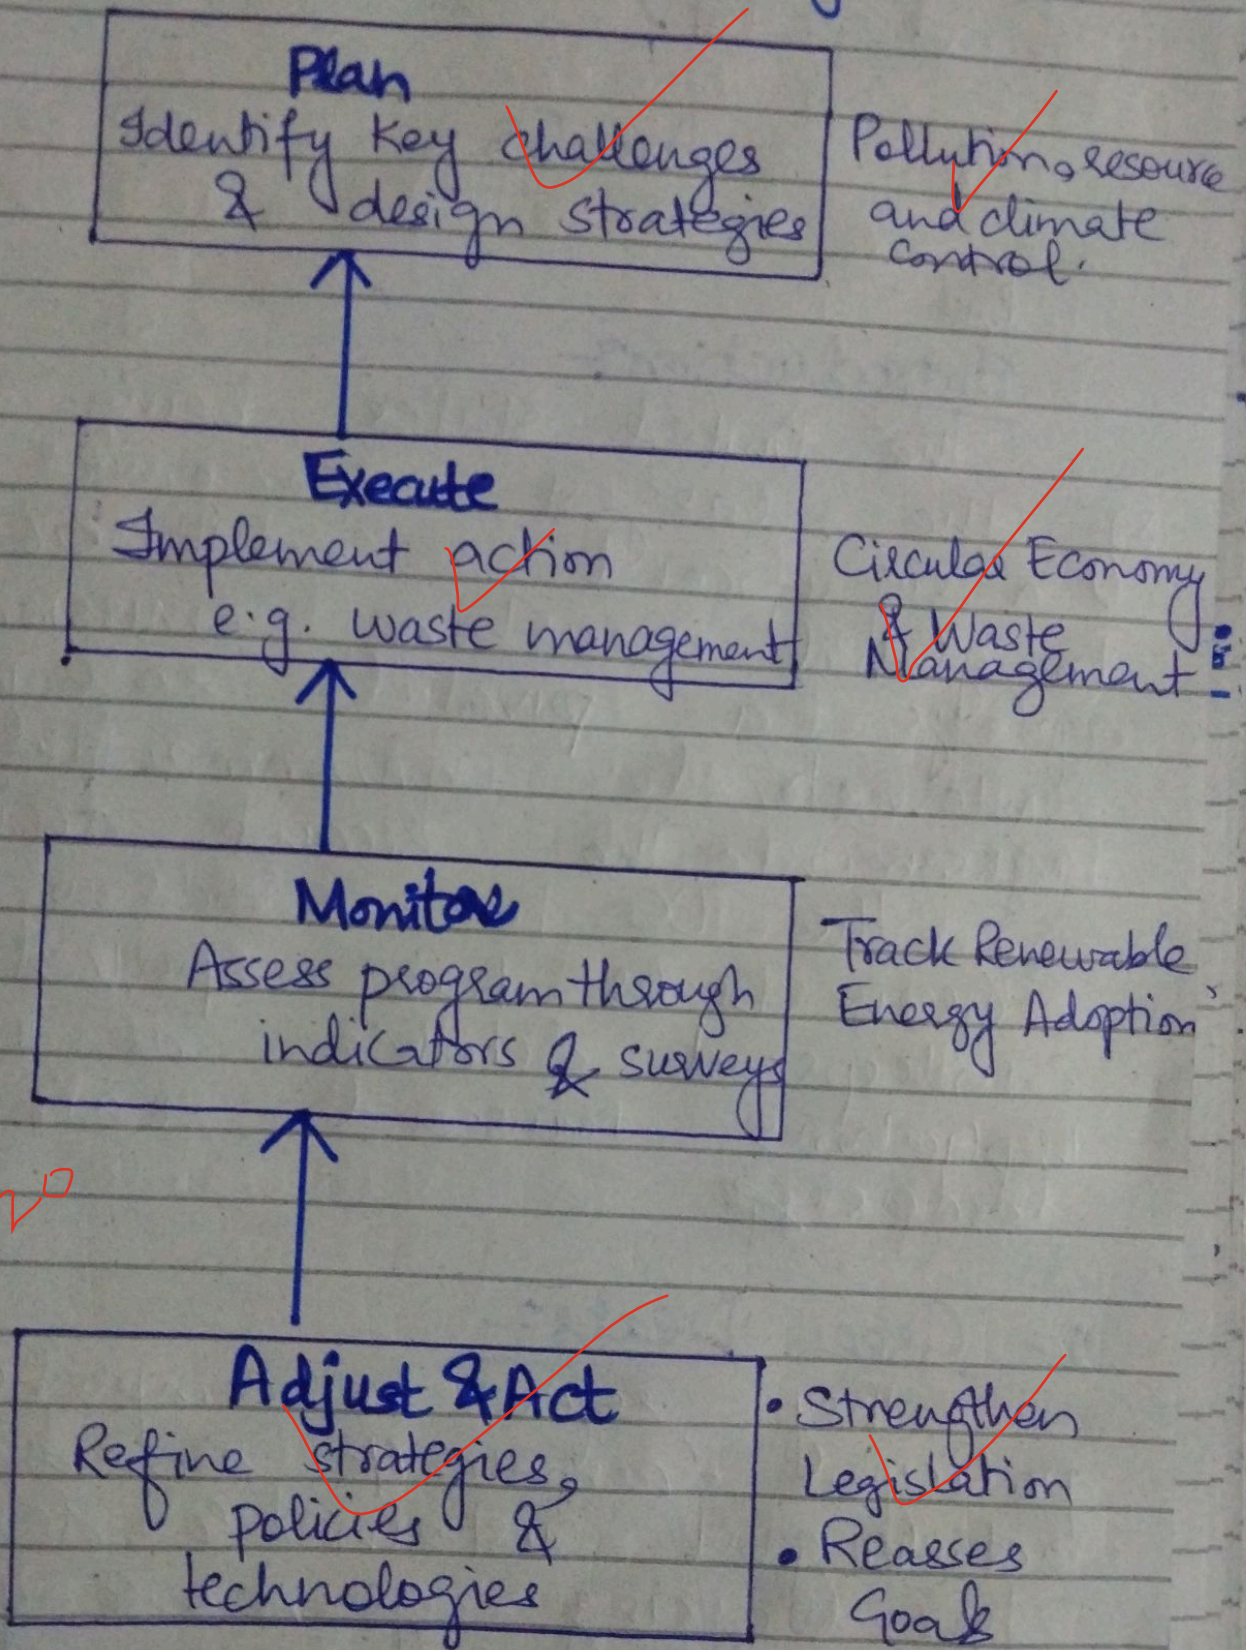 Plan
Identify Key challenges
& design strategies
Pollution, resource
and climate
control.
Execute
Implement action
e.g. waste management
Circular Economy
& Waste
Management
Monitor
Assess program through
indicators & surveys
Track Renewable
Energy Adoption
20
Adjust & Act
Refine strategies,
policies &
technologies
• Strengthen
Legislation
• Reasses
Goals